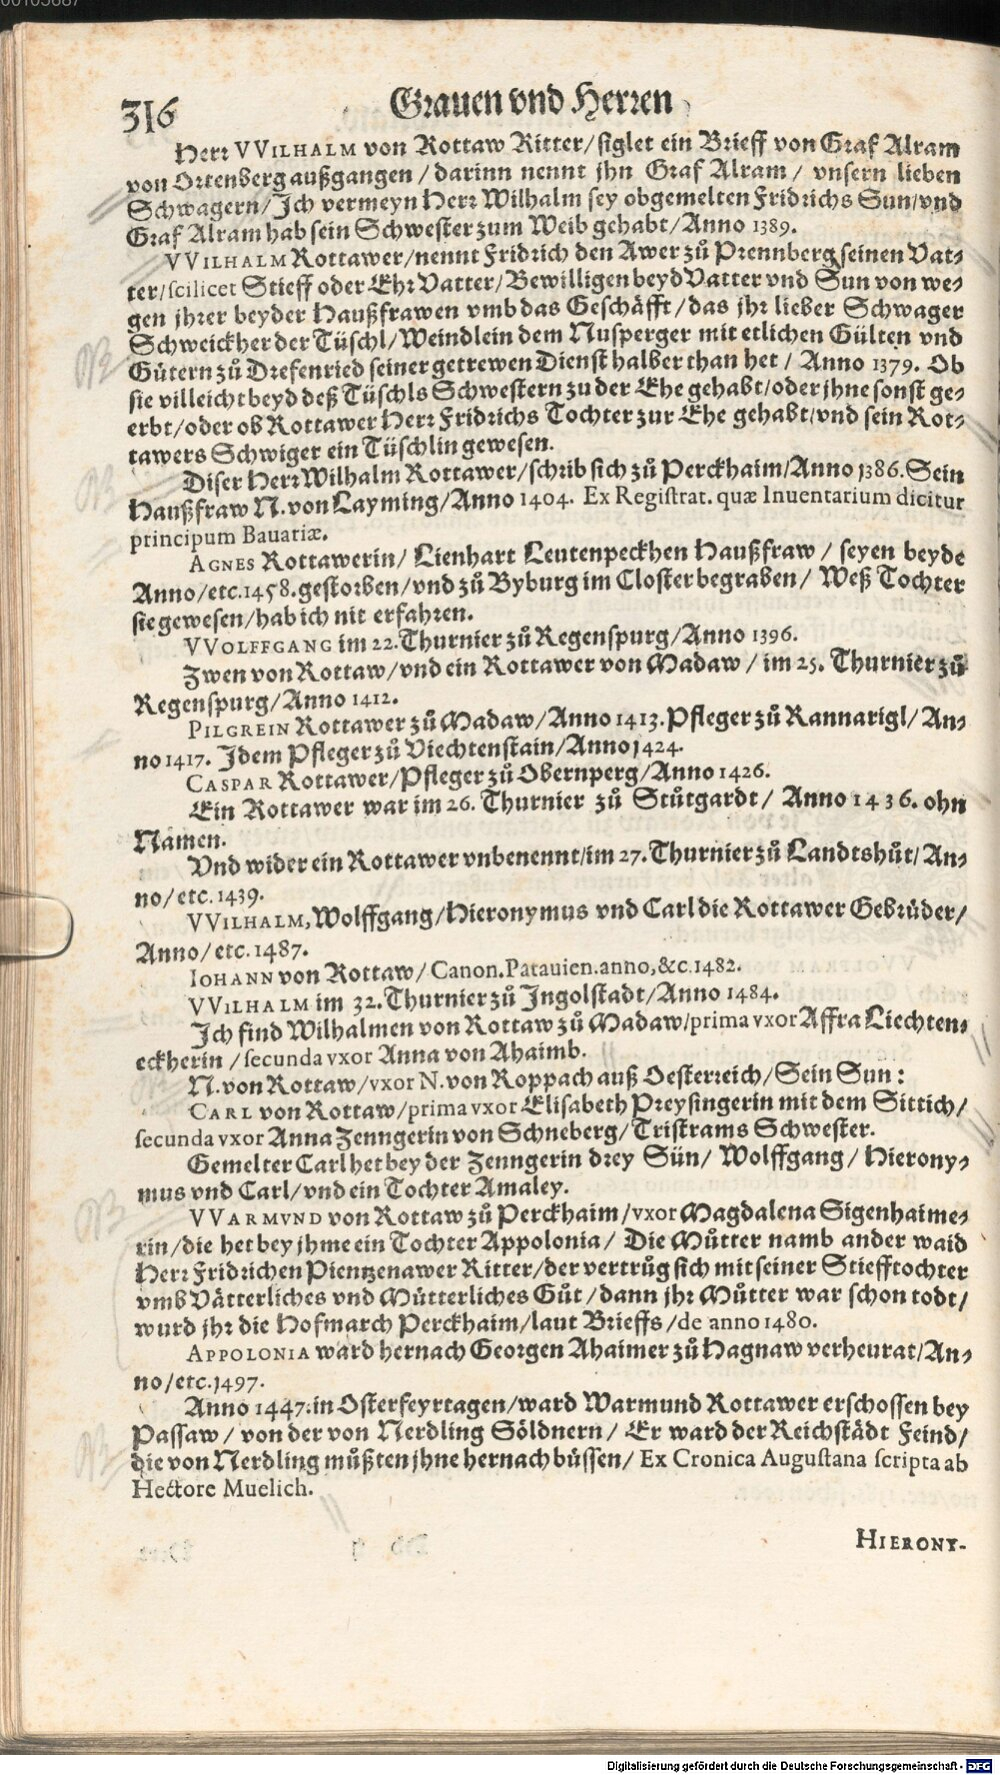 316 Grauen vnd Herren
Herr VVILHALM von Rottaw Ritter/siglet ein Brieff von Graf Alram
von Ortenberg außgangen/darinn nennt jhn Graf Alram/ vnsern lieben
Schwagern/Ich vermeyn Herr Wilhalm sey obgemelten Fridrichs Sun/vnd
Graf Alram hab sein Schwester zum Weib gehabt/Anno 1389.
VVILHALM Rottawer/nennt Fridrich den Awer zů Prennberg seinen Vat-
ter/scilicet Stieff oder Ehr Vatter/Bewilligen beyd Vatter vnd Sun von we-
gen jhrer beyder Haußfrawen vmb das Geschäfft/das jhr lieber Schwager
Schweickher der Tüschl/Weindlein dem Nusperger mit etlichen Gülten vnd
Gütern zů Drefenried seiner getrewen Dienst halber than het/ Anno 1379. Ob
sie villeicht beyd deß Tüschls Schwestern zu der Ehe gehabt/oder jhne sonst ge-
erbt/oder ob Rottawer Herr Fridrichs Tochter zur Ehe gehabt/vnd sein Rot-
tawers Schwiger ein Tüschlin gewesen.
Diser Herr Wilhalm Rottawer/schrib sich zů Perckhaim/Anno 1386. Sein
Haußfraw N. von Layming/Anno 1404. Ex Registrat. quæ Inuentarium dicitur
principum Bauariæ.
AGNES Rottawerin/ Lienhart Leutenpeckhen Haußfraw/ seyen beyde
Anno/etc. 1458. gestorben/vnd zů Byburg im Closter begraben/ Weß Tochter
sie gewesen/hab ich nit erfahren.
VVOLFFGANG im 22. Thurnier zů Regenspurg/Anno 1396.
Zwen von Rottaw/vnd ein Rottawer von Madaw/ im 25. Thurnier zů
Regenspurg/Anno 1412.
PILGREIN Rottawer zů Madaw/Anno 1413. Pfleger zů Rannarigl/An-
no 1417. Idem Pfleger zů Viechtenstain/Anno 1424.
CASPAR Rottawer/Pfleger zů Obernperg/Anno 1426.
Ein Rottawer war im 26. Thurnier zů Stůtgardt/ Anno 1436. ohn
Namen.
Vnd wider ein Rottawer vnbenennt/im 27. Thurnier zů Landtshůt/An-
no/etc. 1439.
VVILHALM, Wolffgang/Hieronymus vnd Carl die Rottawer Gebrüder/
Anno/etc. 1487.
IOHANN von Rottaw/Canon. Patauien. anno, &c. 1482.
VVILHALM im 32. Thurnier zů Ingolstadt/Anno 1484.
Ich find Wilhalmen von Rottaw zů Madaw/prima vxor Affra Liechten-
eckherin/secunda vxor Anna von Ahaimb.
N. von Rottaw/vxor N. von Roppach auß Oesterreich/Sein Sun:
CARL von Rottaw/prima vxor Elisabeth Preysingerin mit dem Sittich/
secunda vxor Anna Zenngerin von Schneberg/Tristrams Schwester.
Gemelter Carl het bey der Zenngerin drey Sün/ Wolffgang/ Hierony-
mus vnd Carl/vnd ein Tochter Amaley.
VVARMVND von Rottaw zů Perckhaim/vxor Magdalena Sigenhaime-
rin/die het bey jhme ein Tochter Appolonia/ Die Můtter namb ander waid
Herr Fridrichen Pientzenawer Ritter/der vertrůg sich mit seiner Stiefftochter
vmb Vätterliches vnd Můtterliches Gůt/dann jhr Můtter war schon todt/
wurd jhr die Hofmarch Perckhaim/laut Brieffs/de anno 1480.
APPOLONIA ward hernach Georgen Ahaimer zů Hagnaw verheurat/An-
no/etc. 1497.
Anno 1447. in Osterfeyrtagen/ward Warmund Rottawer erschossen bey
Passaw/ von der von Nerdling Söldnern/ Er ward der Reichstädt Feind/
die von Nerdling můßten jhne hernach büssen/ Ex Cronica Augustana scripta ab
Hectore Muelich.
HIERONY-
Digitalisierung gefördert durch die Deutsche Forschungsgemeinschaft - DFG